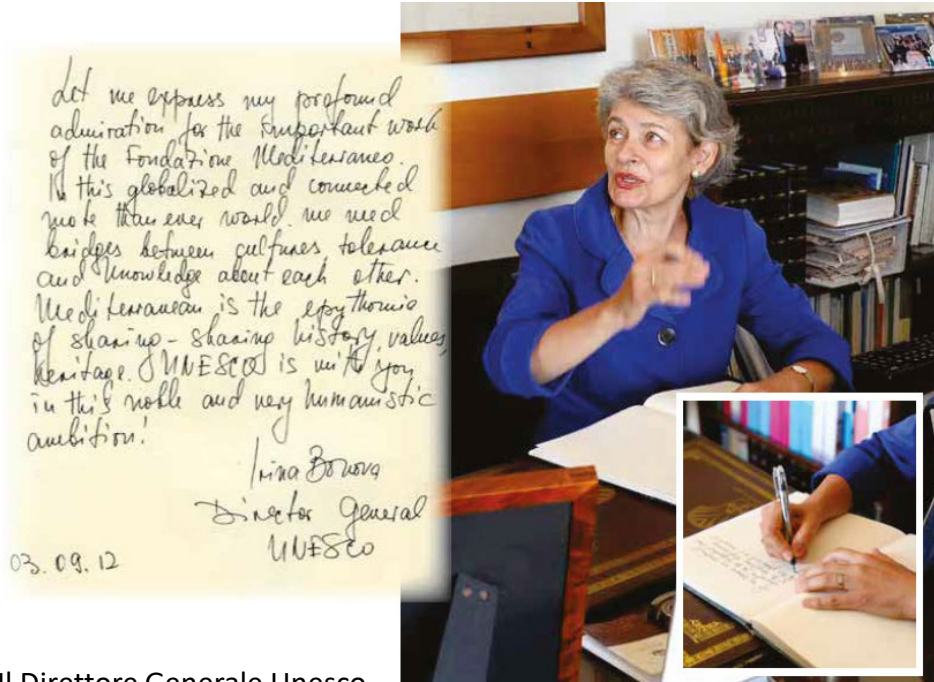 Let me express my profound
admiration for the important work
of the Fondazione Mediterraneo.
In this globalized and connected
more than ever world, we need
bridges between cultures, tolerance
and knowledge about each other.
Mediterranean is the epythomie
of sharing - sharing history, values,
heritage. UNESCO is with you
in this noble and very humanistic
ambition!
Irina Bokova
Director General
UNESCO
03.09.12
Il Direttore Generale Unesco